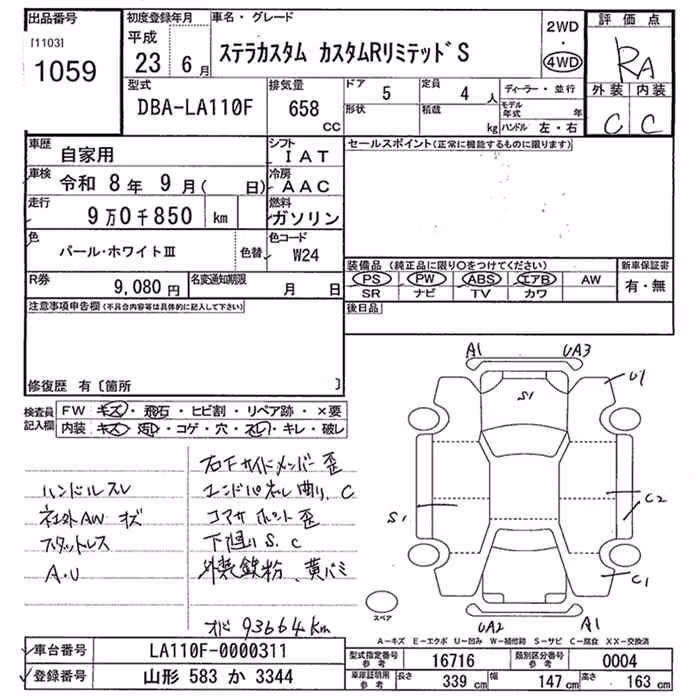 出品番号
[1103]
1059
初度登録年月
平成
23 6月
車名・グレード
ステラカスタム カスタムRリミテッドS
2WD
・
4WD
評価点
RA
外装 内装
C C
型式
DBA-LA110F
排気量
658
CC
ドア
5
定員
4 人
形状
積載
kg
ディーラー・並行
モデル年式 年
ハンドル 左・右
車歴
自家用
シフト
IAT
車検
令和 8年 9月( 日)
冷房
AAC
走行
9万0千850 km
燃料
ガソリン
色
パール・ホワイトⅢ
色替
色コード
W24
R券
9,080円
名変通知期限
月 日
注意事項申告欄(不具合内容等は具体的に記入して下さい)
修復歴 有〔箇所 〕
セールスポイント(正常に機能するものに限ります)
装備品(純正品に限り○をつけてください)
新車保証書
PS PW ABS エアB AW
SR ナビ TV カワ
有・無
後日品
検査員記入欄
FW キズ・飛石・ヒビ割・リペア跡・×要
内装 キズ・汚れ・コゲ・穴・スレ・キレ・破レ
ハンドルスレ
社外AW キズ
スタットレス
A.U
右Fサイドメンバー歪
エンドパネル曲り、C
コアサポート歪
下廻り S.C
外装鉄粉、黄バミ
オド 93664km
A1
UA3
S1
U1
S1
C2
C1
UA2
A1
スペア
A－キズ E－エクボ U－凹み W－補修跡 S－サビ C－腐食 XX－交換済
車台番号
LA110F-0000311
登録番号
山形 583 か 3344
型式指定番号
参考
16716
類別区分番号
参考
0004
車庫証明用
参考
長さ
339 cm
幅
147 cm
高さ
163 cm